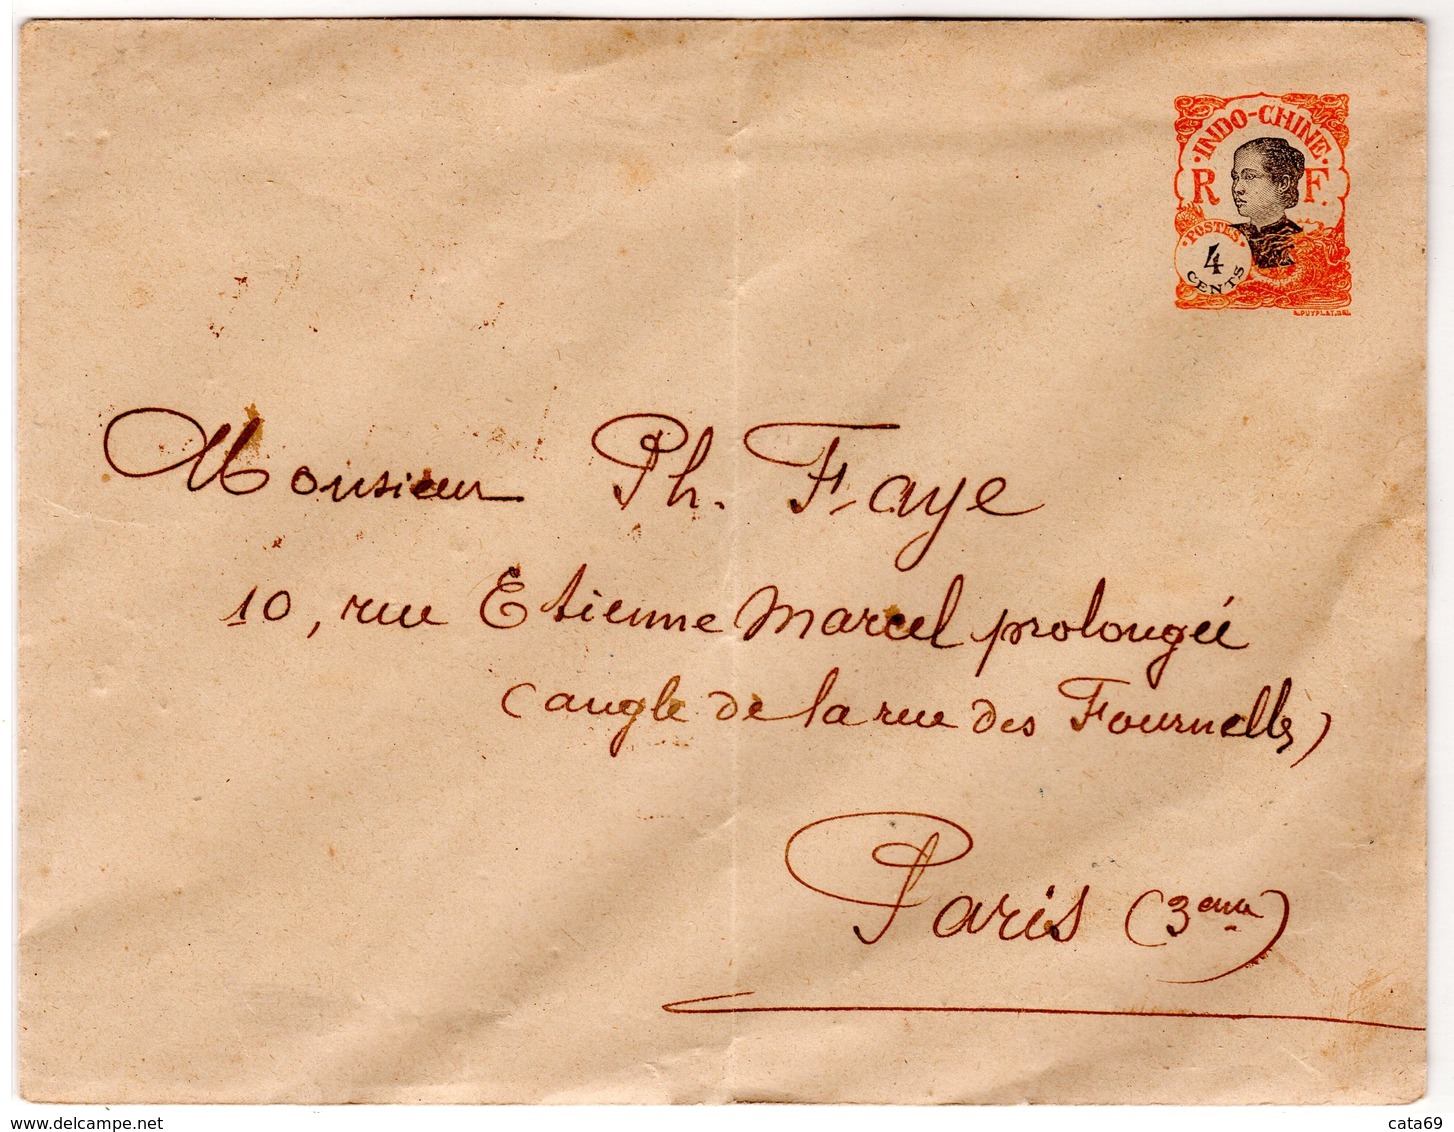 · INDO-CHINE ·
R F.
· POSTES ·
4
CENTS
A.PUYPLAT.DEL
Monsieur Ph. Faye
10, rue Etienne Marcel prolongée
(angle de la rue des Tournelles)
Paris (3eme)
www.delcampe.net
cata69